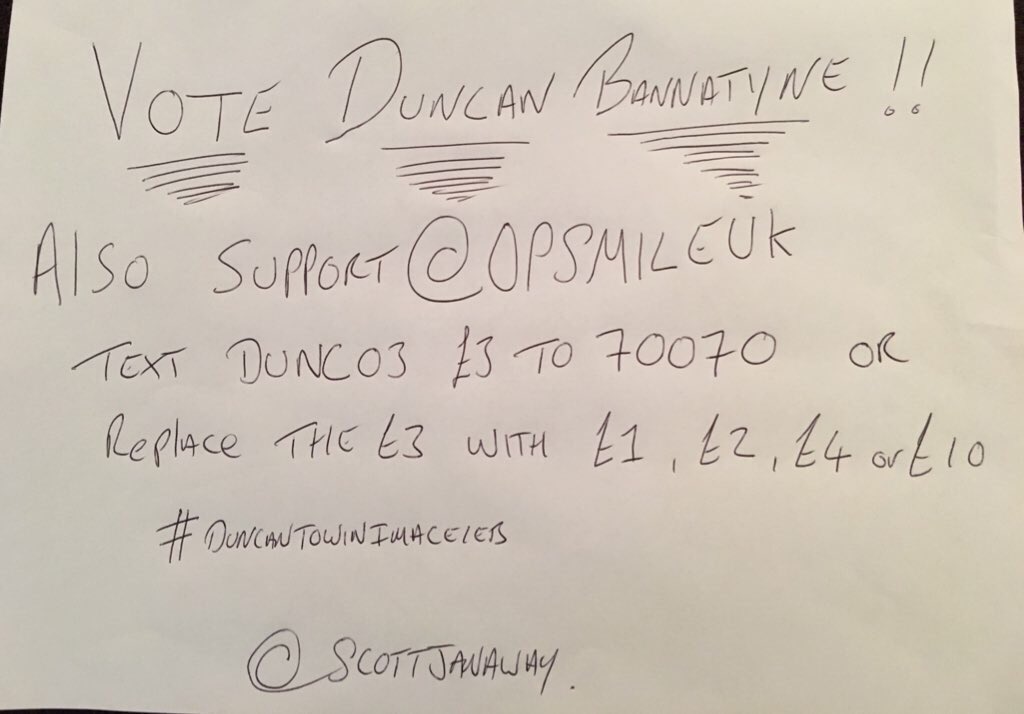 VOTE DUNCAN BANNATYNE !!
ALSO SUPPORT @OPSMILEUK
TEXT DUNC03 £3 TO 70070 OR
REPLACE THE £3 WITH £1, £2, £4 or £10
#DUNCANTOWINIMACELEB
@SCOTTJANAWAY.